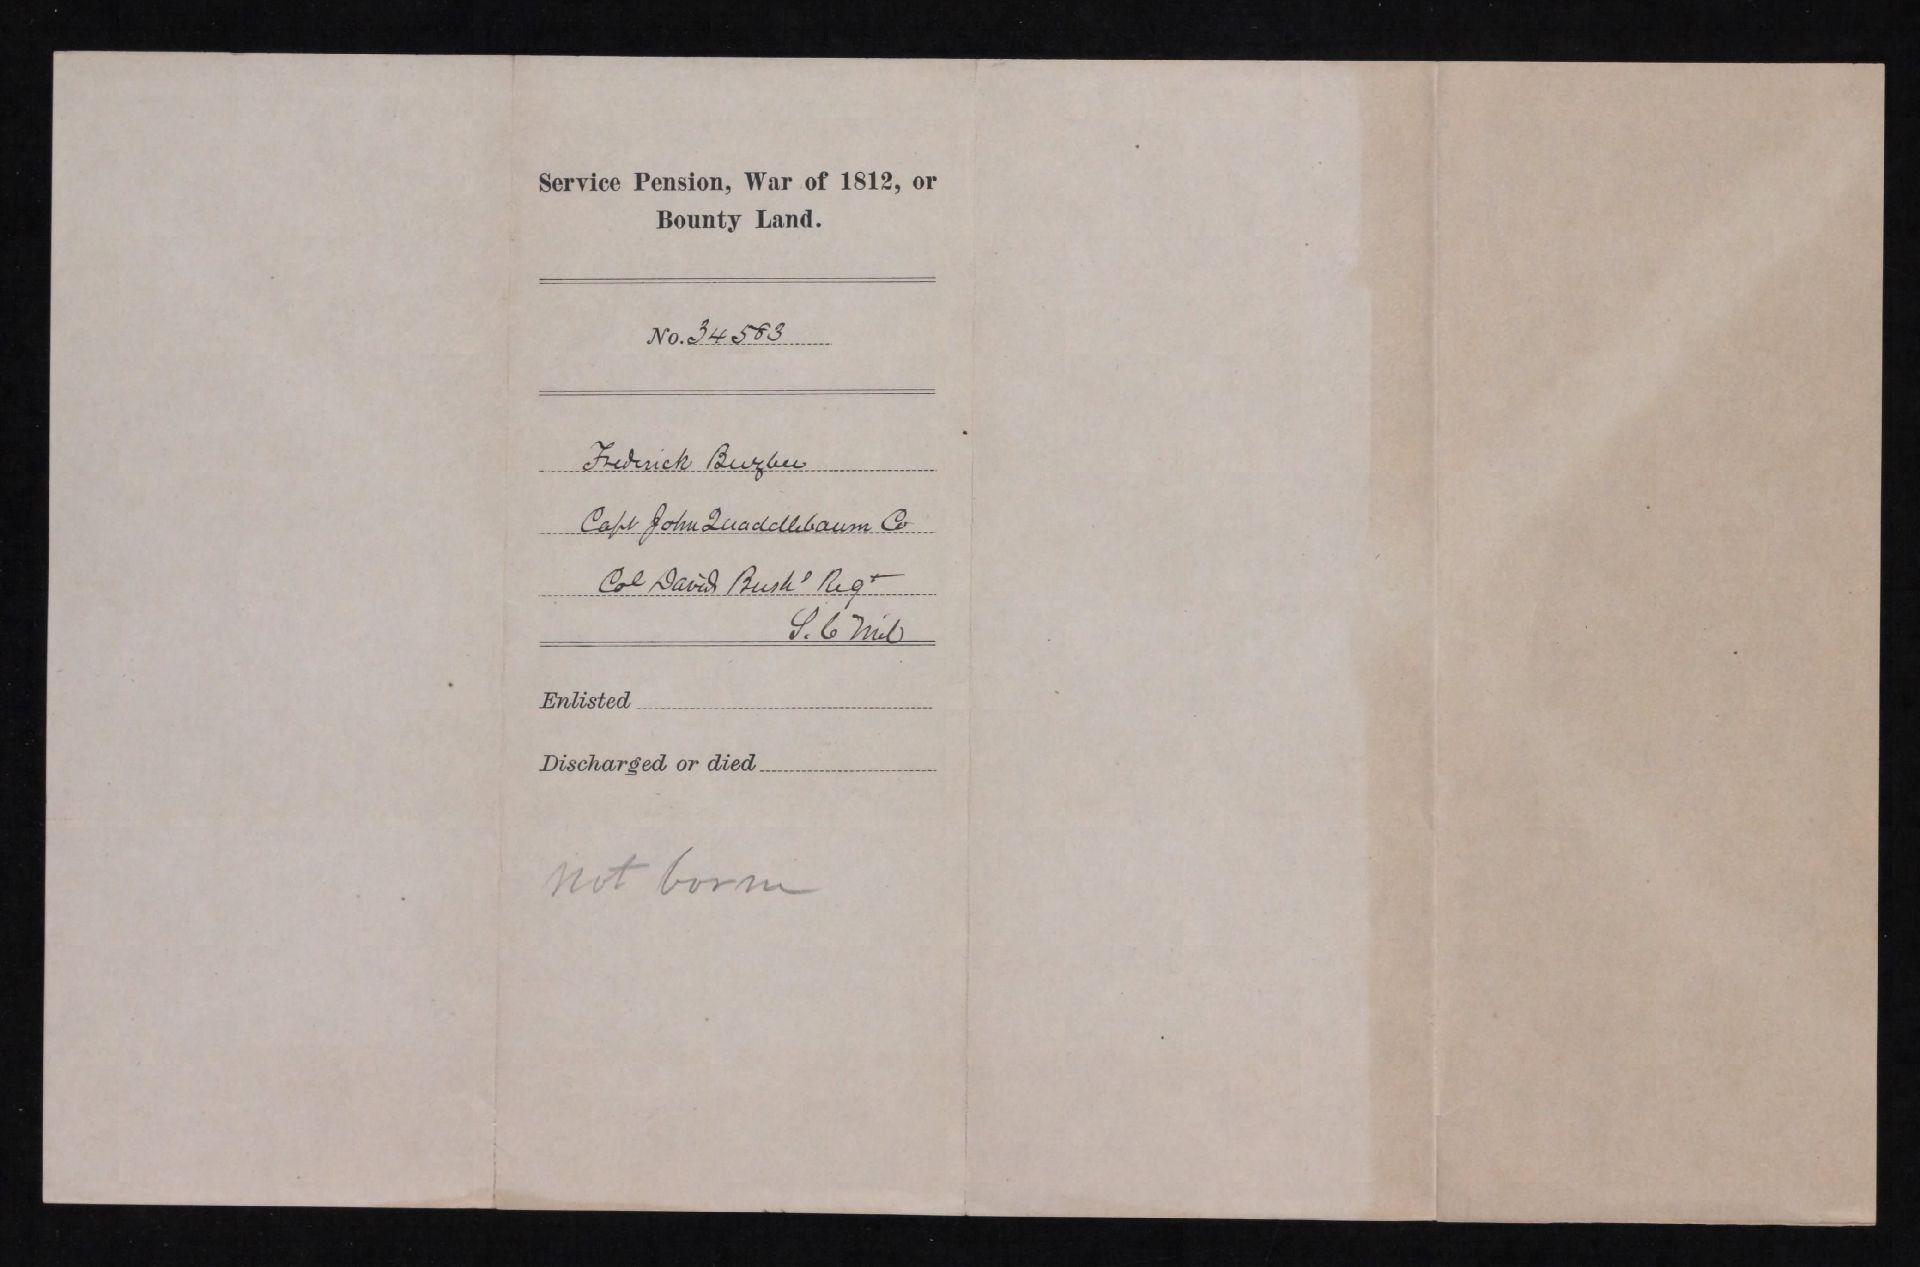 Service Pension, War of 1812, or
Bounty Land.
No. 34583
Frederick Buzbee
Capt John Quaddlebaum Co
Col David Bush's Regt
S. C Mil
Enlisted
Discharged or died
not borne